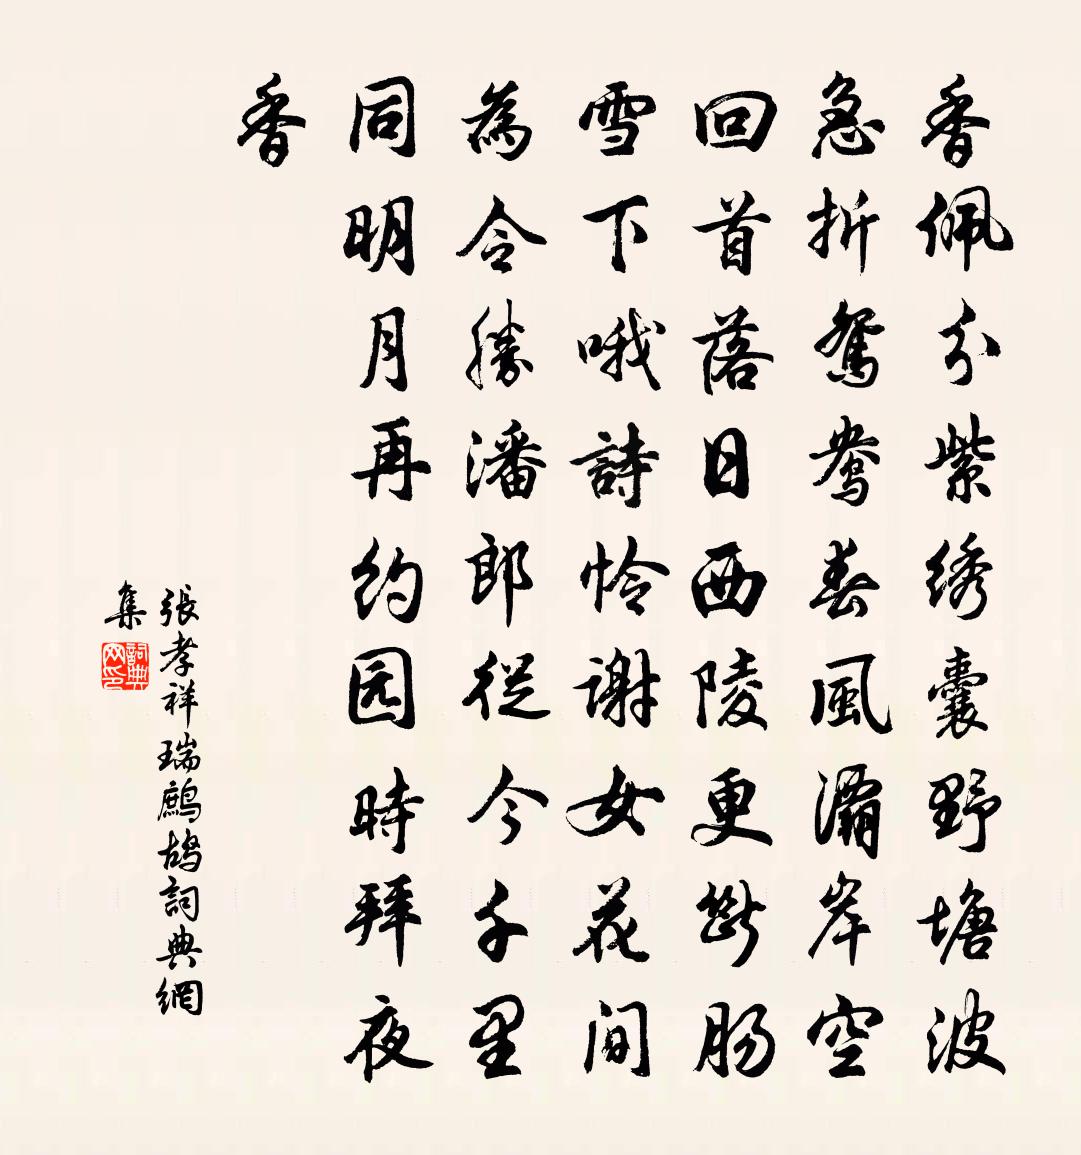 香佩分紫绣囊野塘波
急折鸳鸯春風灞岸空
回首落日西陵更斷肠
雪下哦詩怜谢女花间
為令勝潘郎從今千里
同明月再约园時拜夜
香
張孝祥瑞鷓鴣詞典網
集
詞典网印